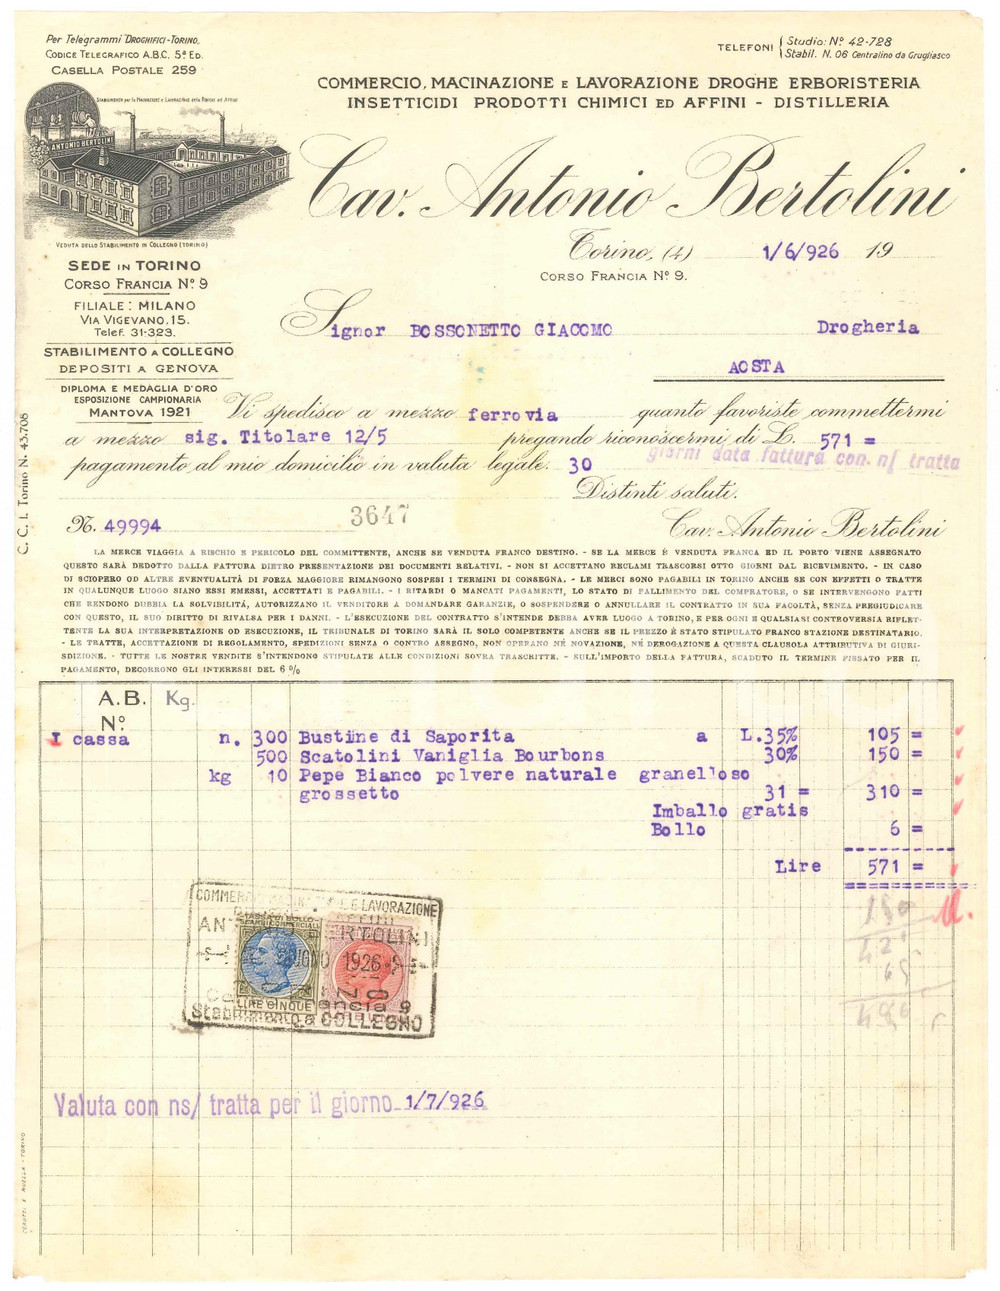 Per Telegrammi "DROGHIFICI-TORINO"
CODICE TELEGRAFICO A.B.C. 5ª ED.
CASELLA POSTALE 259
TELEFONI { Studio: Nº 42-728
Stabil. N. 06 Centralino da Grugliasco
COMMERCIO, MACINAZIONE E LAVORAZIONE DROGHE ERBORISTERIA
INSETTICIDI PRODOTTI CHIMICI ED AFFINI - DISTILLERIA
ANTONIO BERTOLINI
VEDUTA DELLO STABILIMENTO DI COLLEGNO (TORINO)
Cav. Antonio Bertolini
Torino, (4) 1/6/926 19
CORSO FRANCIA Nº 9.
SEDE IN TORINO
CORSO FRANCIA Nº 9
FILIALE: MILANO
VIA VIGEVANO. 15.
Telef. 31-323.
STABILIMENTO A COLLEGNO
DEPOSITI A GENOVA
DIPLOMA E MEDAGLIA D'ORO
ESPOSIZIONE CAMPIONARIA
MANTOVA 1921
Signor BOSSONETTO GIACOMO Drogheria
AOSTA
Vi spedisco a mezzo ferrovia quanto favoriste commettermi
a mezzo sig. Titolare 12/5 pregando riconoscermi di L. 571 =
pagamento al mio domicilio in valuta legale. 30 giorni data fattura con. n/ tratta
Distinti saluti.
N. 49994 3647 Cav. Antonio Bertolini
C. C. I. Torino N. 43.708
LA MERCE VIAGGIA A RISCHIO E PERICOLO DEL COMMITTENTE, ANCHE SE VENDUTA FRANCO DESTINO. - SE LA MERCE È VENDUTA FRANCA ED IL PORTO VIENE ASSEGNATO
QUESTO SARÀ DEDOTTO DALLA FATTURA DIETRO PRESENTAZIONE DEI DOCUMENTI RELATIVI. - NON SI ACCETTANO RECLAMI TRASCORSI OTTO GIORNI DAL RICEVIMENTO. - IN CASO
DI SCIOPERO OD ALTRE EVENTUALITÀ DI FORZA MAGGIORE RIMANGONO SOSPESI I TERMINI DI CONSEGNA. - LE MERCI SONO PAGABILI IN TORINO ANCHE SE CON EFFETTI O TRATTE
IN QUALUNQUE LUOGO SIANO ESSI EMESSI, ACCETTATI E PAGABILI. - I RITARDI O MANCATI PAGAMENTI, LO STATO DI FALLIMENTO DEL COMPRATORE, O SE INTERVENGONO FATTI
CHE RENDONO DUBBIA LA SOLVIBILITÀ, AUTORIZZANO IL VENDITORE A DOMANDARE GARANZIE, O SOSPENDERE O ANNULLARE IL CONTRATTO IN SUA FACOLTÀ, SENZA PREGIUDICARE
CON QUESTO, IL SUO DIRITTO DI RIVALSA PER I DANNI. - L'ESECUZIONE DEL CONTRATTO S'INTENDE DEBBA AVER LUOGO A TORINO, E PER OGNI E QUALSIASI CONTROVERSIA RIFLET-
TENTE LA SUA INTERPRETAZIONE OD ESECUZIONE, IL TRIBUNALE DI TORINO SARÀ IL SOLO COMPETENTE ANCHE SE IL PREZZO È STATO STIPULATO FRANCO STAZIONE DESTINATARIO.
- LE TRATTE, ACCETTAZIONE DI REGOLAMENTO, SPEDIZIONI SENZA O CONTRO ASSEGNO, NON OPERANO NÉ NOVAZIONE, NÉ DEROGAZIONE A QUESTA CLAUSOLA ATTRIBUTIVA DI GIURI-
SDIZIONE. - TUTTE LE NOSTRE VENDITE S'INTENDONO STIPULATE ALLE CONDIZIONI SOVRA TRASCRITTE. - SULL'IMPORTO DELLA FATTURA, SCADUTO IL TERMINE FISSATO PER IL
PAGAMENTO, DECORRONO GLI INTERESSI DEL 6 %
A.B. Kg.
Nº.
I cassa n. 300 Bustine di Saporita a L.35% 105 =
500 Scatolini Vaniglia Bourbons 30% 150 =
kg 10 Pepe Bianco polvere naturale granelloso
grossetto 31 = 310 =
Imballo gratis
Bollo 6 =
Lire 571 =
150
421
COMMERCIO MACINAZIONE E LAVORAZIONE
ANTONIO BERTOLINI
GIUGNO 1926
LIRE CINQUE
Stabilimento a COLLEGNO
Valuta con ns/ tratta per il giorno 1/7/926